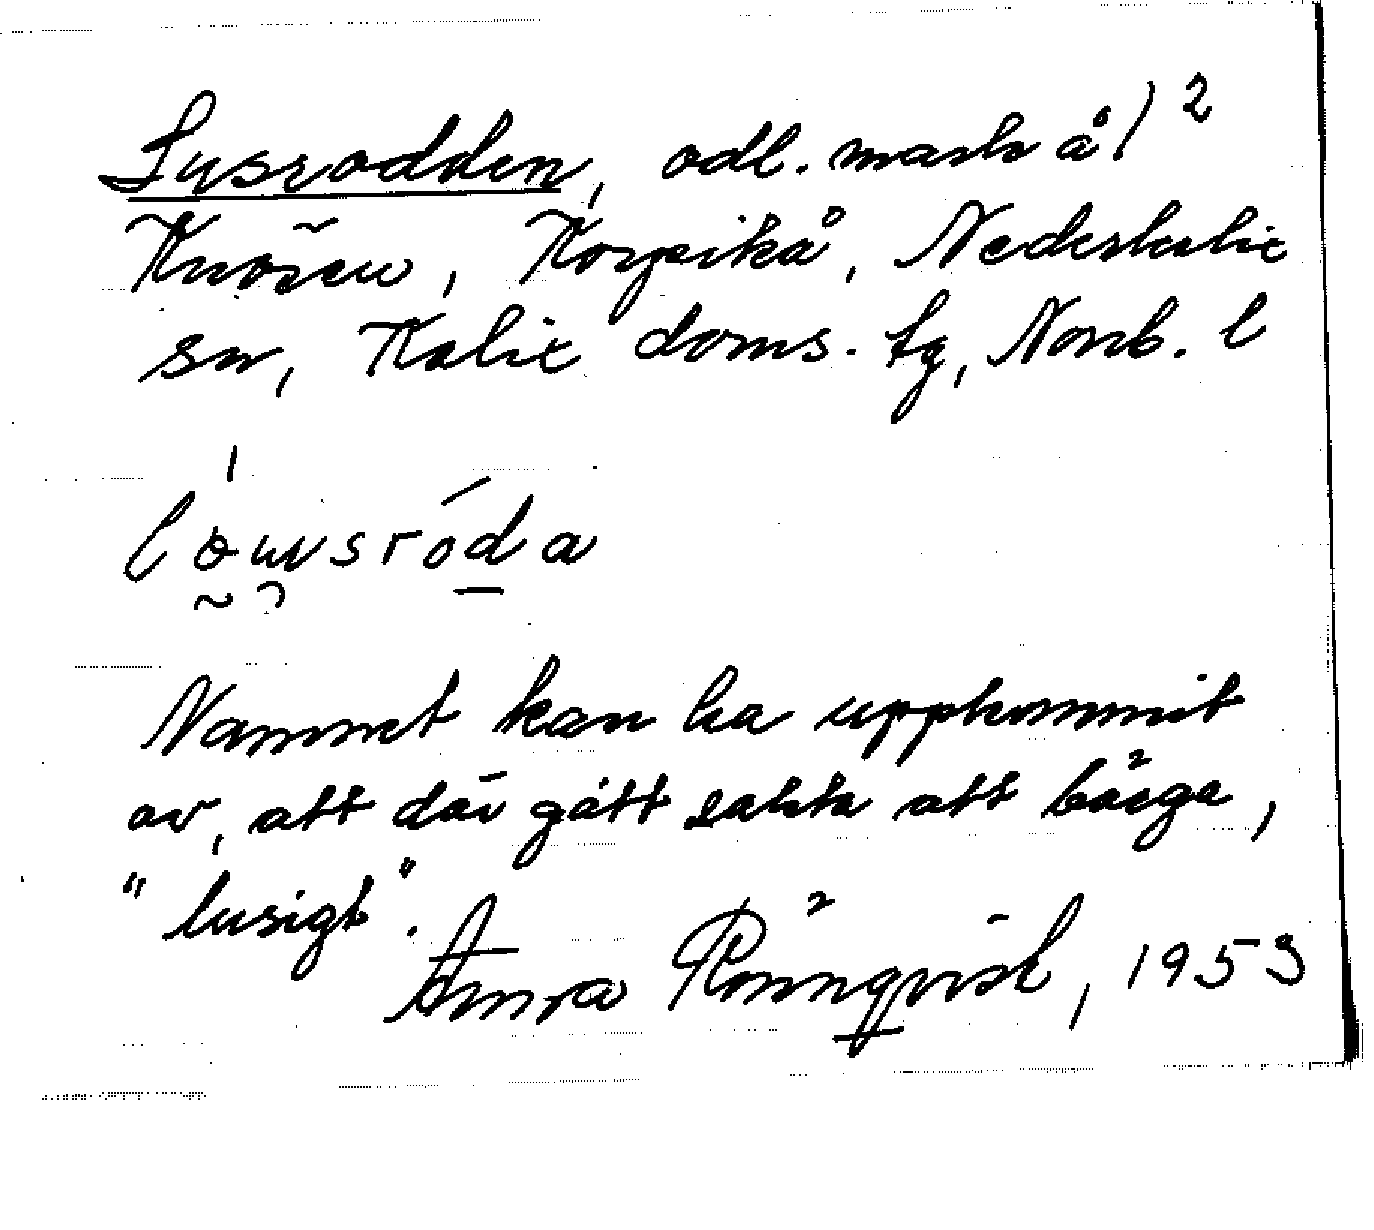 Lusrödden, odl. mark å /²
Knösen, Korpikå, Nederkalix
sn, Kalix doms. tg, Norrb. l
löusróda
Namnet kan ha uppkommit
av, att där gått sakta att bärga,
"lusigt".
Anna Rönnqvist, 1953